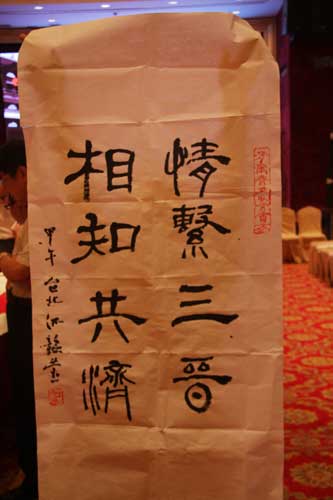 情繫三晉
相知共濟
甲午 台北